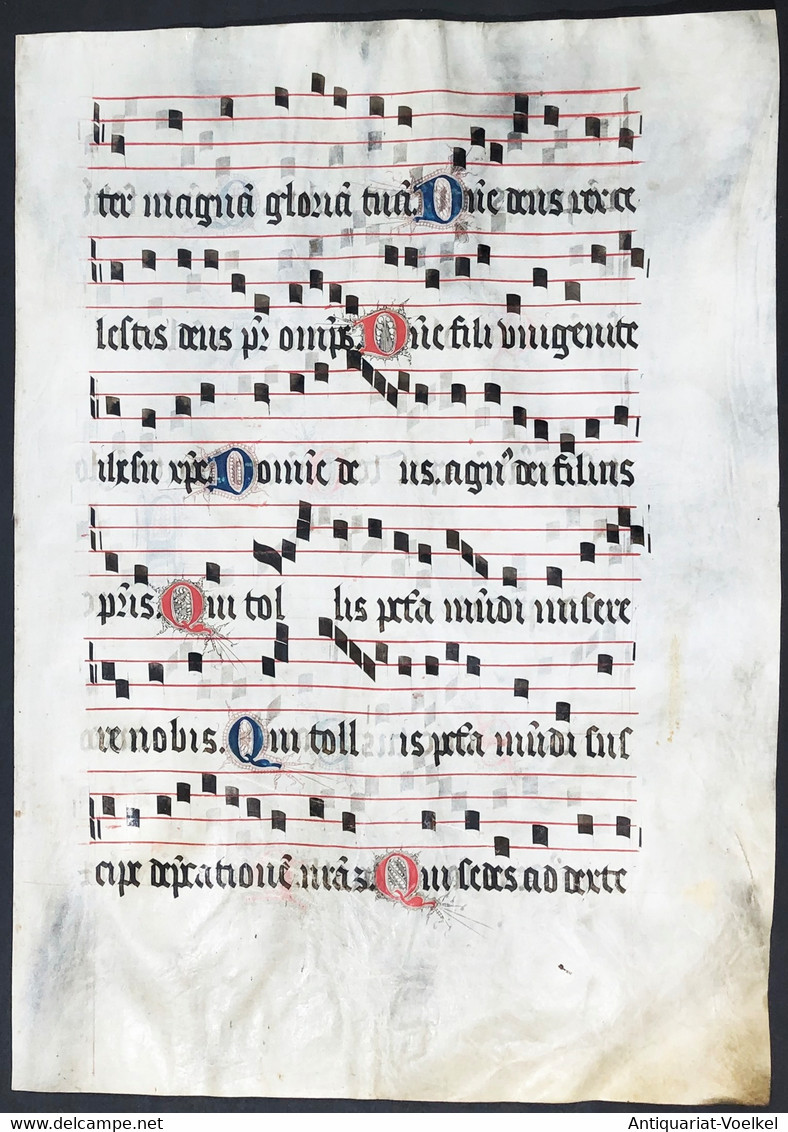 ter magnā gloriā tuā. Dn̄e deus rex ce
lestis deus pr̄ omp̄s. Dn̄e fili vnigenite
ihesu xp̄e. Domīe de us. agnꝰ dei filius
pr̄is. Qui tol lis pctā mūdi misere
re nobis. Qui toll is pctā mūdi sus
cipe dep̄cationē nrāz. Qui sedes. ad dexte
Antiquariat-Voelkel